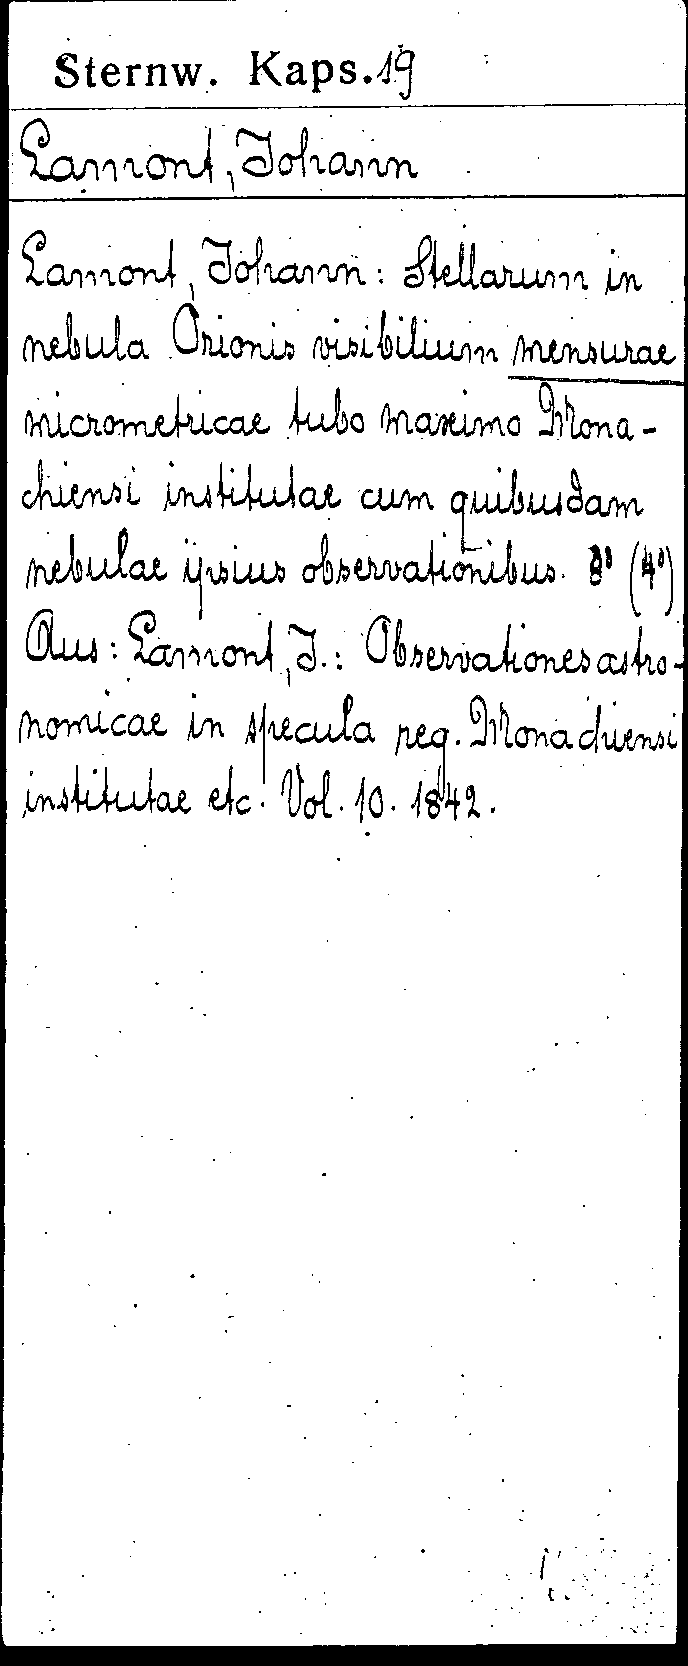 Sternw. Kaps. 19
Lamont, Johann
Lamont, Johann: Stellarum in
nebula Orionis visibilium mensurae
micrometricae tubo maximo Mona-
chiensi institutae cum quibusdam
nebulae ipsius observationibus. 8° (4°)
Aus: Lamont, J.: Observationes astro-
nomicae in specula reg. Monachiensi
institutae etc. Vol. 10. 1842.